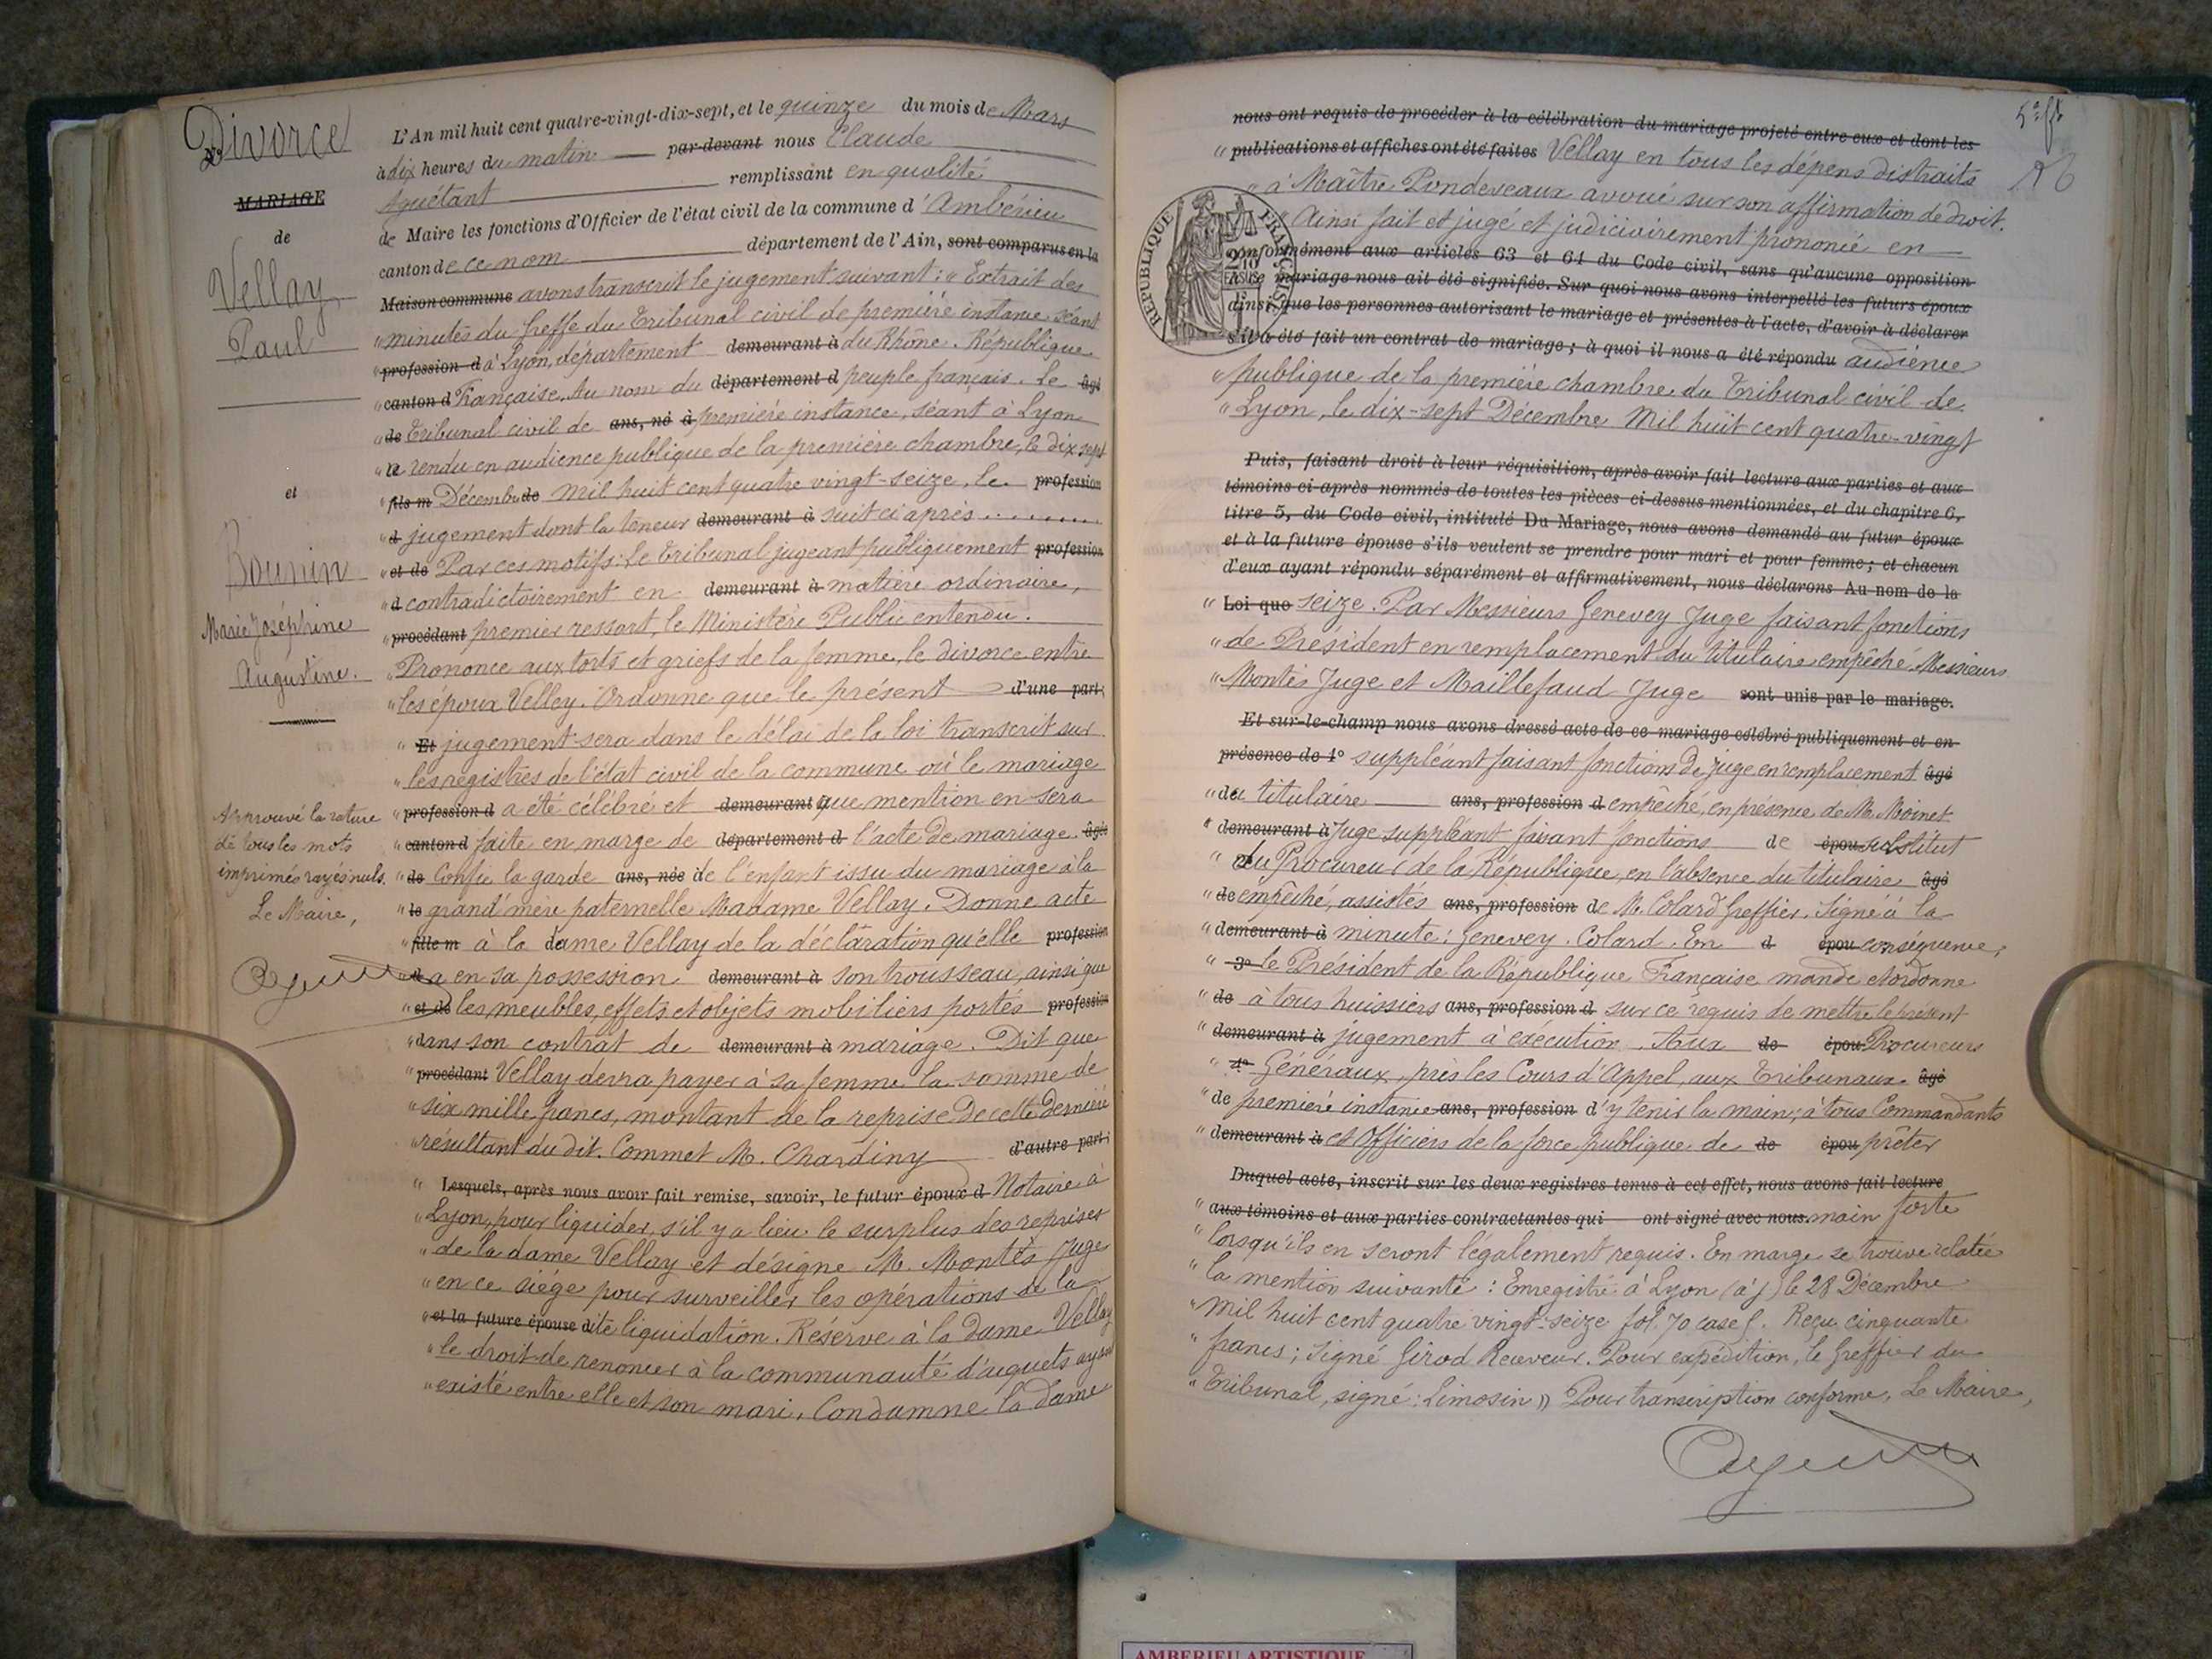 Divorce
MARIAGE
de
Vellay
Paul
et
Bounin
Marie Joséphine
Augustine.
Approuvé la rature
de tous les mots
imprimés rayés nuls.
Le Maire,
L'An mil huit cent quatre-vingt-dix-sept, et le quinze du mois de Mars
à dix heures du matin par-devant nous Claude
Aguétant remplissant en qualité
de Maire les fonctions d'Officier de l'état civil de la commune d'Ambérieu
canton de ce nom département de l'Ain, sont comparus en la
Maison commune avons transcrit le jugement suivant : " Extrait des
" minutes du Greffe du Tribunal civil de première instance séant
" profession d à Lyon, département demeurant à du Rhône. République
" canton d Française. Au nom du département d peuple français. Le âgé
" de Tribunal civil de ans, né à première instance, séant à Lyon
" a rendu en audience publique de la première chambre, le dix sept
" fils m Décembre de Mil huit cent quatre vingt-seize, le profession
" d jugement dont la teneur demeurant à suit ci après . . . . . . . .
" et de Par ces motifs : Le Tribunal jugeant publiquement profession
" d contradictoirement en demeurant à matière ordinaire,
" procédant premier ressort, le Ministère Public entendu.
" Prononce aux torts et griefs de la femme, le divorce entre
" les époux Vellay. Ordonne que le présent d'une part;
" Et jugement sera dans le délai de la loi transcrit sur
" les registres de l'état civil de la commune où le mariage
" profession d a été célébré et demeurant à que mention en sera
" canton d faite en marge de département d l'acte de mariage. âgée
" de Confie la garde ans, née de l'enfant issu du mariage à la
" le grand'mère paternelle Madame Vellay. Donne acte
" fille m à la dame Vellay de la déclaration qu'elle profession
d a en sa possession demeurant à son trousseau, ainsi que
" et de les meubles, effets et objets mobiliers portés profession
" dans son contrat de demeurant à mariage. Dit que
" procédant Vellay devra payer à sa femme la somme de
" six mille francs, montant de la reprise de cette dernière
" résultant du dit. Commet M. Chardiny d'autre part;
" Lesquels, après nous avoir fait remise, savoir, le futur époux d Notaire à
" Lyon, pour liquider, s'il y a lieu le surplus des reprises
" de la dame Vellay et désigne M. Montès Juge
" en ce siège pour surveiller les opérations de la
" et la future épouse dite liquidation. Réserve à la dame Vellay
" le droit de renoncer à la communauté d'acquets ayant
" existé entre elle et son mari. Condamne la dame
nous ont requis de procéder à la célébration du mariage projeté entre eux et dont les
" publications et affiches ont été faites Vellay en tous les dépens distraits
" à Maître Pondeveaux avoué sur son affirmation de droit.
" Ainsi fait et jugé et judiciairement prononcé en
RÉPUBLIQUE FRANÇAISE
conformément aux articles 63 et 64 du Code civil, sans qu'aucune opposition
mariage nous ait été signifiée. Sur quoi nous avons interpellé les futurs époux
ainsi que les personnes autorisant le mariage et présentes à l'acte, d'avoir à déclarer
s'il a été fait un contrat de mariage ; à quoi il nous a été répondu audience
" publique de la première chambre du Tribunal civil de
" Lyon, le dix-sept Décembre Mil huit cent quatre-vingt
Puis, faisant droit à leur réquisition, après avoir fait lecture aux parties et aux
témoins ci-après nommés de toutes les pièces ci-dessus mentionnées, et du chapitre 6,
titre 5, du Code civil, intitulé Du Mariage, nous avons demandé au futur époux
et à la future épouse s'ils veulent se prendre pour mari et pour femme ; et chacun
d'eux ayant répondu séparément et affirmativement, nous déclarons Au nom de la
" Loi que seize. Par Messieurs Genevey Juge faisant fonctions
" de Président en remplacement du titulaire empêché Messieurs
" Montès Juge et Maillefaud Juge sont unis par le mariage.
Et sur-le-champ nous avons dressé acte de ce mariage célébré publiquement et en
présence de 1° suppléant faisant fonctions de juge en remplacement âgé
" du titulaire ans, profession d empêché, en présence de M. Moinet
" demeurant à Juge suppléant faisant fonctions de épou substitut
" du Procureur de la République, en l'absence du titulaire âgé
" de empêché, assistés ans, profession de M. Colard Greffier. Signé à la
" demeurant à minute : Genevey. Colard. En d épou conséquence,
" 3° le Président de la République Française mande et ordonne
" de à tous huissiers ans, profession d sur ce requis de mettre le présent
" demeurant à jugement à exécution. Aux de épou Procureurs
" 4° Généraux, près les Cours d'Appel, aux Tribunaux âgé
" de première instance ans, profession d'y tenir la main ; à tous Commandants
" demeurant à et Officiers de la force publique de de épou prêter
Duquel acte, inscrit sur les deux registres tenus à cet effet, nous avons fait lecture
" aux témoins et aux parties contractantes qui ont signé avec nous. main forte
" lorsqu'ils en seront légalement requis. En marge se trouve relatée
" la mention suivante : Enregistré à Lyon (a j) le 28 Décembre
" Mil huit cent quatre vingt-seize fol. 70 case Reçu cinquante
" francs ; signé Girod Receveur. Pour expédition, le Greffier du
" Tribunal, signé : Limosin » Pour transcription conforme, Le Maire,
AMBERIEU ARTISTIQUE